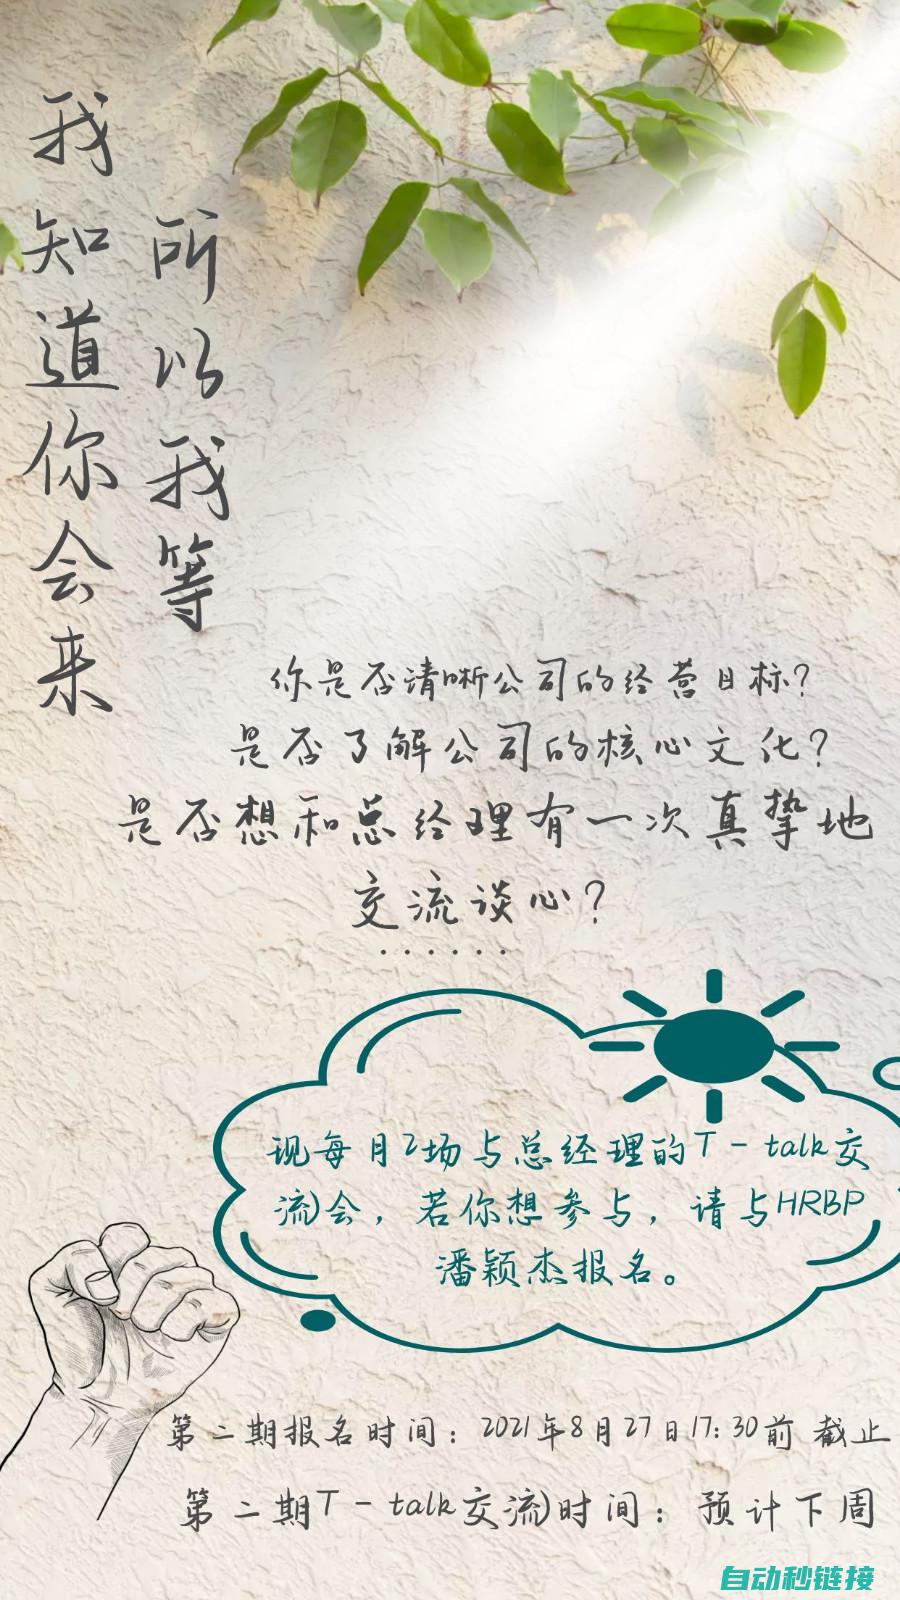 我知道你会来
所以我等
你是否清晰公司的经营目标?
是否了解公司的核心文化?
是否想和总经理有一次真挚地
交流谈心?
······
现每月2场与总经理的T-talk交
流会，若你想参与，请与HRBP
潘颖杰报名。
第二期报名时间：2021年8月27日17:30前 截止
第二期T-talk交流时间：预计下周
自动秒链接